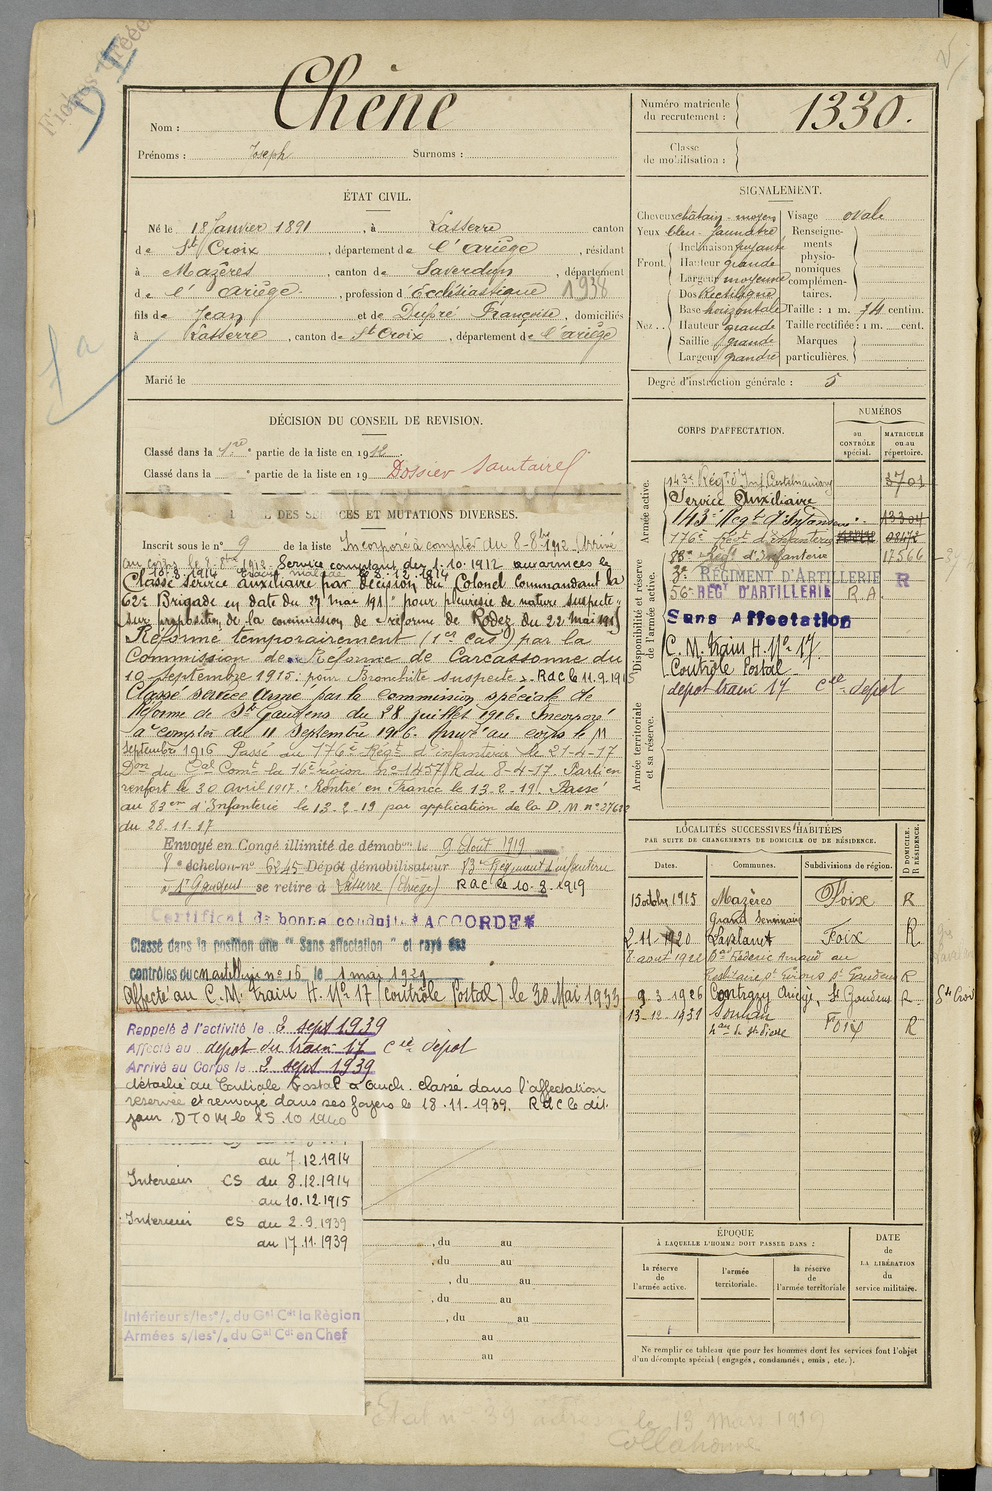 Fiches créées
Chêne
Nom :
Prénoms : Joseph Surnoms :
Numéro matricule du recrutement : 1330.
Classe de mobilisation :
ÉTAT CIVIL.
Né le 18 Janvier 1891, à Lasserre canton
de St Croix, département de l'Ariège, résidant
à Mazères, canton de Saverdun, département
de l'Ariège, profession d'Ecclésiastique 1938
fils de Jean et de Dupré Françoise, domiciliés
à Lasserre, canton de St Croix, département de l'Ariège
Marié le
SIGNALEMENT.
Cheveux châtain-moyen Visage ovale
Yeux bleu-jaunâtre
Front. Inclinaison fuyante
Hauteur grande
Largeur moyenne
Nez.. Dos Rectiligne
Base horizontale
Hauteur grande
Saillie grande
Largeur grande
Renseignements physionomiques complémentaires.
Taille : 1 m. 74 centim.
Taille rectifiée : 1 m. cent.
Marques particulières.
Degré d'instruction générale : 5
DÉCISION DU CONSEIL DE REVISION.
Classé dans la 1re partie de la liste en 1912
Classé dans la ° partie de la liste en 19 Dossier sanitaire
DES SERVICES ET MUTATIONS DIVERSES.
Inscrit sous le n° 9 de la liste Incorporé à compter du 8-8bre 1912. Arrivé
au corps le 8-8bre 1912. Service comptant du 1.10.1912 aux armées le
Classé service auxiliaire par décision du Colonel Commandant la
62e Brigade en date du 27 mai 191 pour pleurésie de nature suspecte
sur proposition de la commission de réforme de Rodez du 22 mai 1915
Réformé temporairement (1er cas) par la
Commission de Réforme de Carcassonne du
10 Septembre 1915: pour Bronchite suspecte. RdC le 11.9.1915
Classé service Armé par la commission spéciale de
Réforme de St Gaudens du 28 juillet 1916. Incorporé
à compter du 11 Septembre 1916. Arrivé au corps le 11
septembre 1916 Passé au 176e Régt d'infanterie le 21-4-17
Don du Gal Comt la 16e région no 1457/R du 8-4-17. Parti en
renfort le 30 Avril 1917. Rentré en France le 13-2-19. Passé
au 83e d'Infanterie le 13-2-19 par application de la D. M. n°
du 28-11-17
Envoyé en Congé illimité de démob le 9 Aout 1919
échelon no 6245 Dépôt démobilisateur 83e Régiment d'infanterie
à St Gaudens se retire à Lasserre (Ariège) RdC le 10-8-1919
Certificat de bonne conduite *ACCORDÉ*
Classé dans la position dite "Sans affectation" et rayé des
contrôles du n° 16 le 1 mai 1929
Affecté au C.M. train H. No 17 (Contrôle Postal) le 30 Mai 1933
Rappelé à l'activité le 2 sept 1939
Affecté au depot du train 17 Cie depot
Arrivé au Corps le 2 sept 1939
détaché au Contrôle Postal à Auch. Classé dans l'affectation
réservée et renvoyé dans ses foyers le 18.11.1939. RdC le dit
jour. DTOM le 15.10 1940
au 7.12.1914
Interieur CS du 8.12.1914
au 10.12.1915
Interieur CS du 2.9.1939
au 17.11.1939
Intérieur s/les o/. du Gal Cdt la Région
Armées s/les o/. du Gal Cdt en Chef
, du au
, du au
, du au
, du au
, du au
au
au
CORPS D'AFFECTATION.
NUMÉROS
au CONTRÔLE spécial.
MATRICULE ou au répertoire.
Armée active.
Disponibilité et réserve de l'armée active.
Armée territoriale et sa réserve.
143e Régt d'Inf Castelnaudary 3701
Service Auxiliaire
143e Régt d'Infanterie 13304
176e Régt d'infanterie
83e Régt d'Infanterie 17566
3e RÉGIMENT D'ARTILLERIE R
56e REGt D'ARTILLERIE R.A.
Sans Affectation
C. M. train H. No 17.
Contrôle Postal
depot train 17 Cie depot
LOCALITÉS SUCCESSIVES HABITÉES
PAR SUITE DE CHANGEMENTS DE DOMICILE OU DE RÉSIDENCE.
Dates. Communes. Subdivisions de région. D DOMICILE. R RÉSIDENCE.
15 octobre 1915 Mazères Foix R
Grand Seminaire
2-11-1920 Lavelanet Foix R
8 aout 1922
St Girons St Gaudens R
9 3 1926 Contrazy Ariège, St Gaudens R. Ste Croix
13-12-1931 Soulan Foix R
ÉPOQUE
À LAQUELLE L'HOMME DOIT PASSER DANS :
la réserve de l'armée active.
l'armée territoriale.
la réserve de l'armée territoriale
DATE de LA LIBÉRATION du service militaire.
Ne remplir ce tableau que pour les hommes dont les services font l'objet
d'un décompte spécial (engagés, condamnés, omis, etc.).
Etat n° 39 adressé le 13 mars 1919